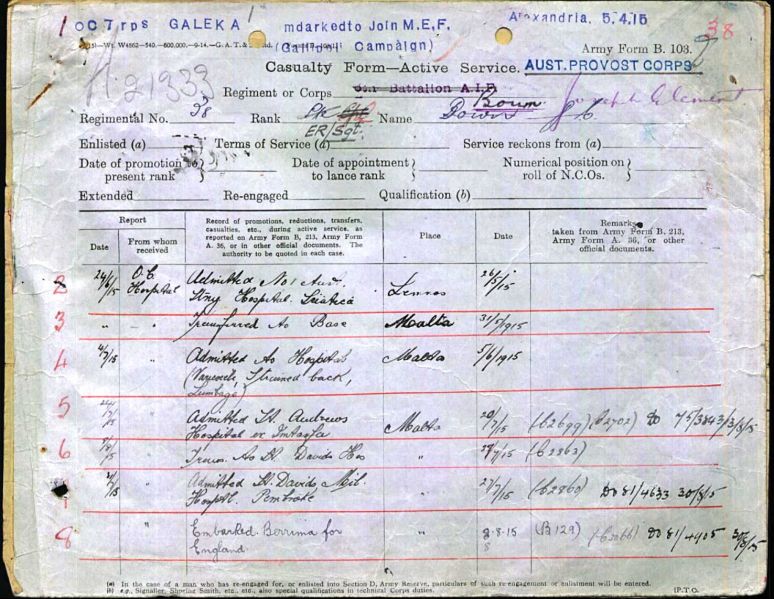 1 OC Trps GALEKA mdarked to Join M.E.F. Alexandria. 5.4.15 38
(Gallipoli Campaign)
Army Form B. 103.
Casualty Form—Active Service. AUST. PROVOST CORPS
Regiment or Corps 6th Battalion A.I.F.
Regimental No. 38 Rank Name Joseph Clement
ER/Sgt.
Enlisted (a) Terms of Service (a) Service reckons from (a)
Date of promotion to present rank Date of appointment to lance rank Numerical position on roll of N.C.Os.
Extended Re-engaged Qualification (b)
Report
Date From whom received Record of promotions, reductions, transfers, casualties, etc., during active service, as reported on Army Form B. 213, Army Form A. 36, or in other official documents. The authority to be quoted in each case. Place Date Remarks taken from Army Form B. 213, Army Form A. 36, or other official documents.
2 24/6/15 O.C. Hospital Admitted No 1 Aus. Stny Hospital. Sciatica Lemnos 26/5/15
3 " " Transferred to Base Malta 31/5/1915
4 " Admitted to Hospital Malta 5/6/1915
(Varicocele, Strained back, Lumbago)
5 Admitted St. Andrews Hospital Malta (b2699) (b2702) Do
6 Trans. to St. Davids Hos " 27/7/15 (b2863)
7 Admitted St. Davids Mil. Hosptl. Pembroke " 27/7/15 (b2860) Do 81/4633 30/8/15
8 " Embarked Berrima for England " 8-8-15 (B129) Do 81/4905 30/8/15
(a) In the case of a man who has re-engaged for, or enlisted into Section D, Army Reserve, particulars of such re-engagement or enlistment will be entered.
(b) e.g., Signaller, Shoeing Smith, etc., etc., also special qualifications in technical Corps duties. [P.T.O.